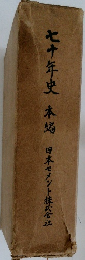 七十年史 本編
日本セメント株式会社